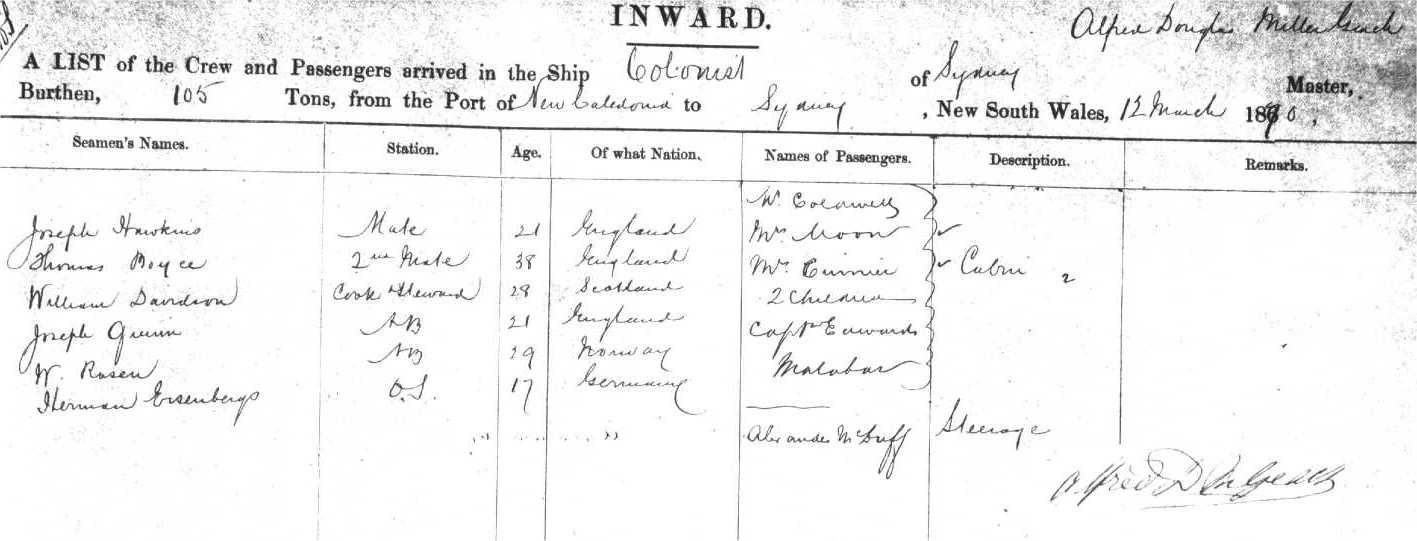 INWARD.
Alfred Douglas Miller Geach
A LIST of the Crew and Passengers arrived in the Ship Colonist of Sydney Master,
Burthen, 105 Tons, from the Port of New Caledonia to Sydney, New South Wales, 12 March 1870,
Seamen's Names. Station. Age. Of what Nation. Names of Passengers. Description. Remarks.
Joseph Hawkins Mate 21 England Mrs Moon
Thomas Boyce 2nd Mate 38 England Cabin 2
William Davidson Cook & Steward 28 Scotland 2 Children
Joseph Quinn AB 21 England Captn Edwards
W. Rosen AB 29 Norway Malabar
Herman Eisenbergs O.S. 17 Germany
" " " Alexander McDuff Steerage
Alfred D M Geach